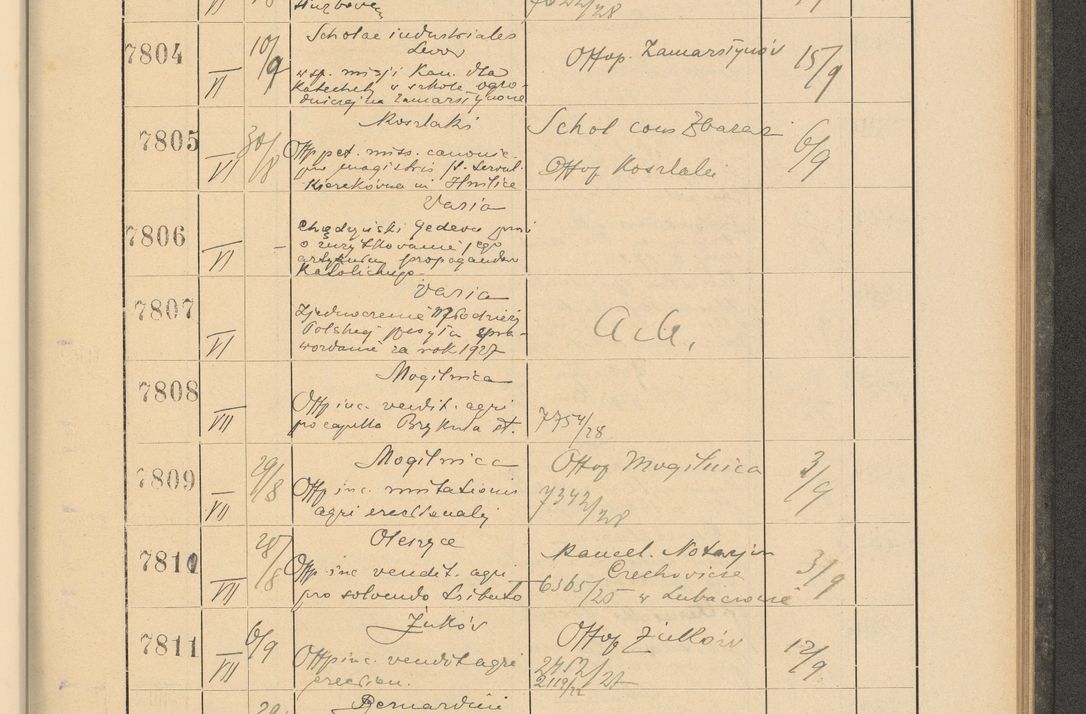 7804 VI 10/9 Scholae industriales
Lwów
w sp. misji kan. dla
katechety w szkole ogro-
dniczej na Zamarstynowie
Offop. Zamarstynów 15/9
7805 VI 30/8 Koszlaki
Offp pet. miss. canonic.
pro magistris
in Hnilice
Schol cons Zbaraż
Offop Koszlaki 6/9
7806 VI - Varia
Chądzyński Gedeon prosi
o zużytkowanie jego
artykułu propagandow
Katolickiego
7807 VI Varia
Zjednoczenie Młodzieży
Polskiej przesyła spra-
wozdanie za rok 1927
a. a.
7808 VII Mogilnica
Offp inc. vendit. agri
pro capella Brykula st.
7754/28
7809 VII 29/8 Mogilnica
Offp inc. mutationis
agri erectionalis
Offop Mogilnica
7342/28
3/9
7810 VII 28/8 Oleszyce
Offp inc vendit. agri
pro solvendo tributo
Kancel. Notarjn
Czechowicz
6365/25 w Lubaczowie
3/9
7811 VII 6/9 Żułków
Offp inc. vendit agri
erection.
Offop Żułków
2452/27
2119/22
12/9
Bernardini